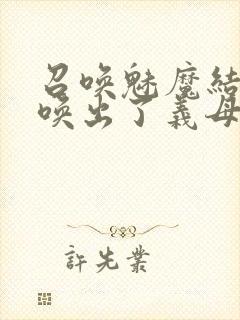 召唤魅魔結
唤出了義母
許先業